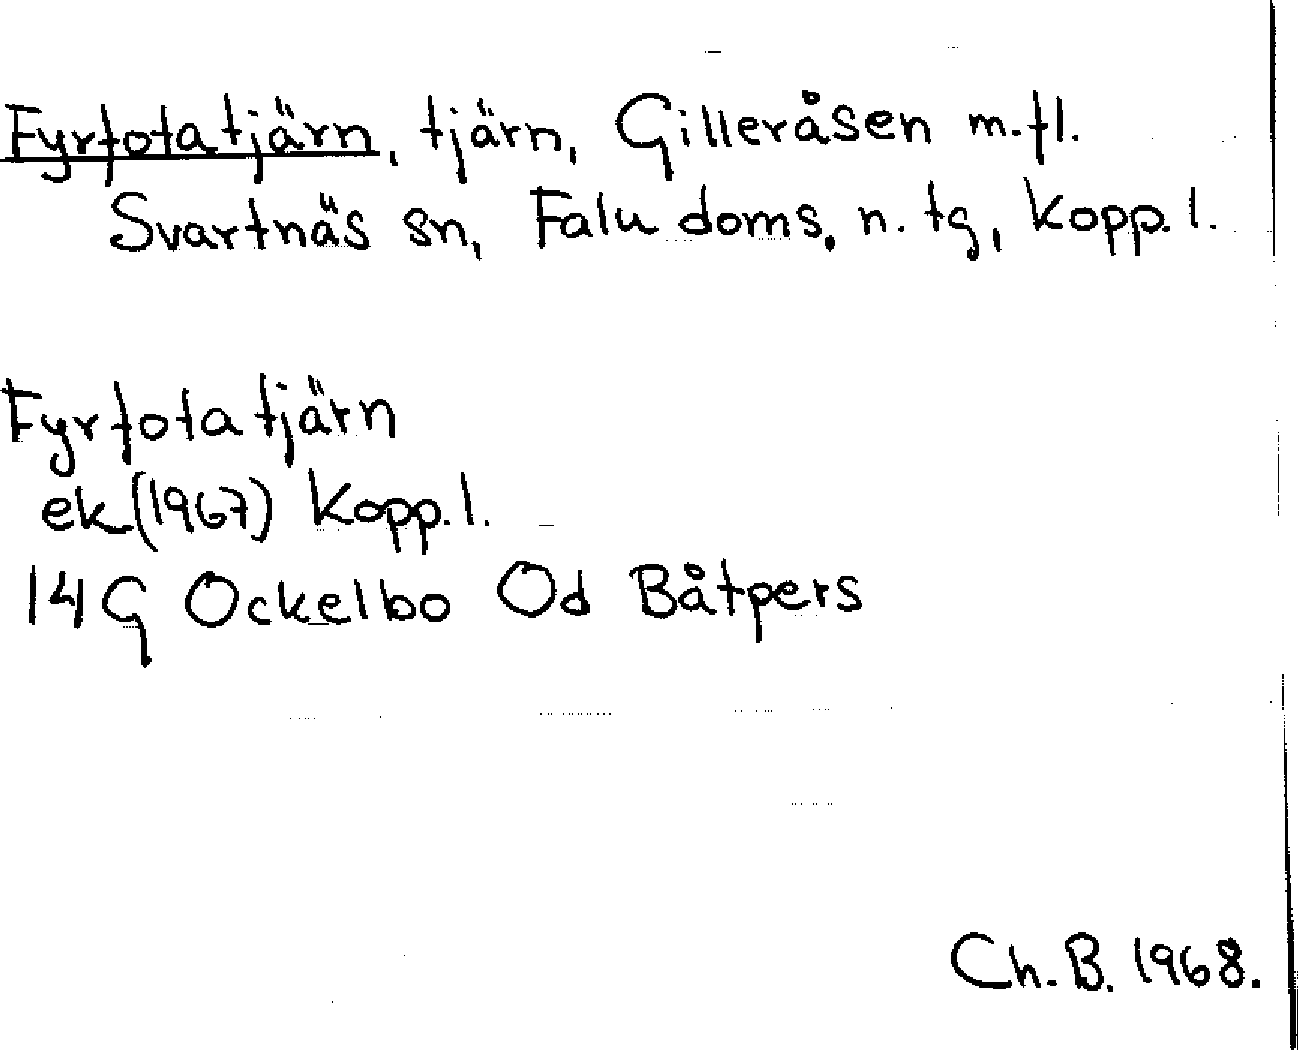 Fyrfotatjärn, tjärn, Gilleråsen m.fl.
Svartnäs sn, Falu doms. n. tg, Kopp. l.
Fyrfotatjärn
ek (1967) Kopp. l.
14 G Ockelbo Od Båtpers
Ch. B. 1968.